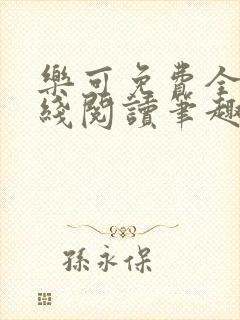 樂可免費全
綫閱讀筆趣
孫永保